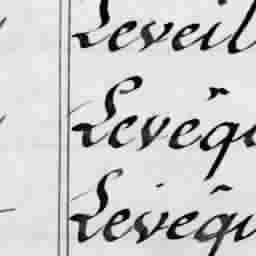 Leveil
Levêq
Levêqu